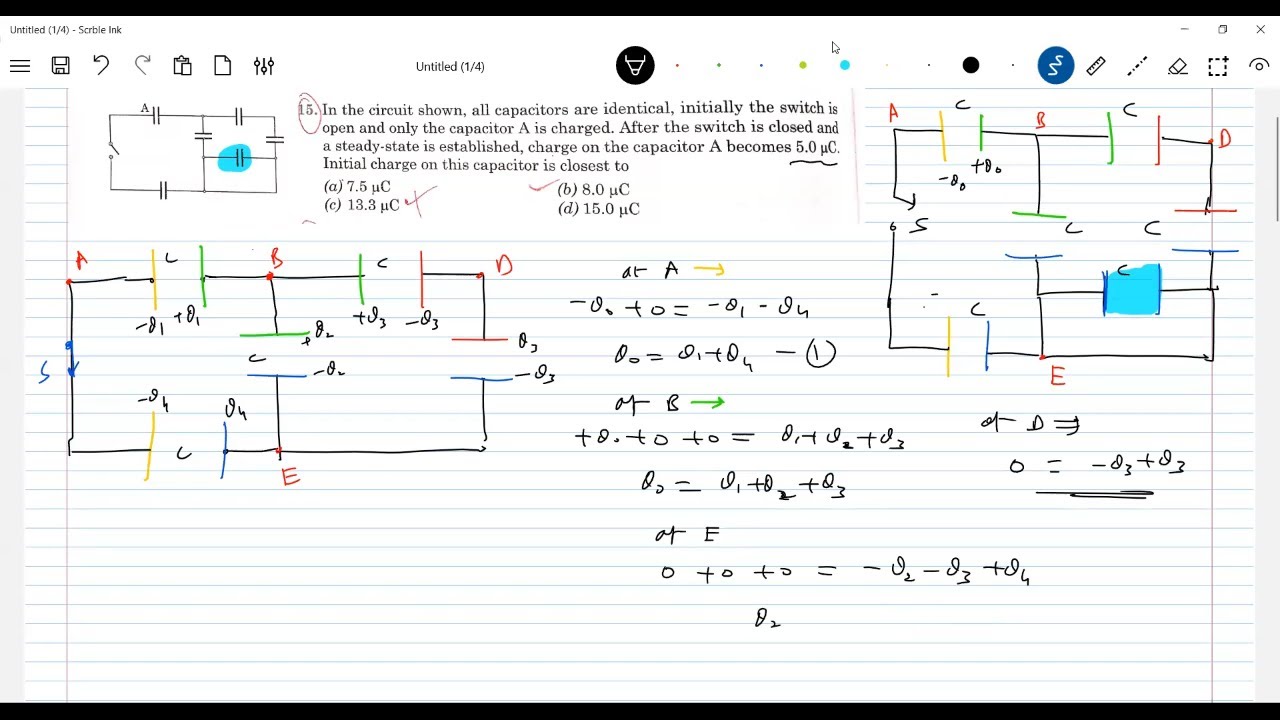 Untitled (1/4) - Scrble Ink
Untitled (1/4)
A
15. In the circuit shown, all capacitors are identical, initially the switch is
open and only the capacitor A is charged. After the switch is closed and
a steady-state is established, charge on the capacitor A becomes 5.0 μC.
Initial charge on this capacitor is closest to
(a) 7.5 μC (b) 8.0 μC
(c) 13.3 μC (d) 15.0 μC
A C B C D
-Q₀ +Q₀
S C C
C
C
E
A C B C D
-Q₁ +Q₁ +Q₃ -Q₃
+Q₂ Q₃
S C -Q₂ -Q₃
-Q₄ Q₄
C
E
at A →
-Q₀ + 0 = -Q₁ - Q₄
Q₀ = Q₁ + Q₄ — ①
at B →
+Q₀ + 0 + 0 = Q₁ + Q₂ + Q₃
Q₀ = Q₁ + Q₂ + Q₃
at E
0 + 0 + 0 = -Q₂ - Q₃ + Q₄
Q₂
at D ⇒
0 = -Q₃ + Q₃